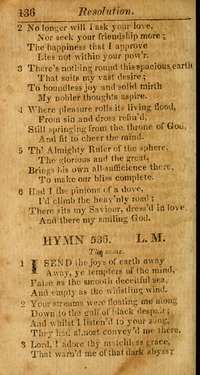 436 Resolution.
2 No longer will I ask your love,
Nor seek your friendship more;
The happiness that I approve
Lies not within your pow'r.
3 There's nothing round this spacious earth
That suits my vast desire;
To boundless joy and solid mirth
My nobler thoughts aspire.
4 Where pleasure rolls its living flood,
From sin and dross refin'd,
Still springing from the throne of God,
And fit to cheer the mind.
5 Th' Almighty Ruler of the sphere,
The glorious and the great,
Brings his own all-sufficience there,
To make our bliss complete.
6 Had I the pinions of a dove,
I'd climb the heav'nly road;
There sits my Saviour, dress'd in love,
And there my smiling God.
HYMN 535. L. M.
The same.
1 I SEND the joys of earth away
Away, ye tempters of the mind,
False as the smooth deceitful sea,
And empty as the whistling wind.
2 Your streams were floating me along
Down to the gulf of black despair;
And whilst I listen'd to your song,
They had almost convey'd me there.
3 Lord, I adore thy matchless grace,
That warn'd me of that dark abyss;